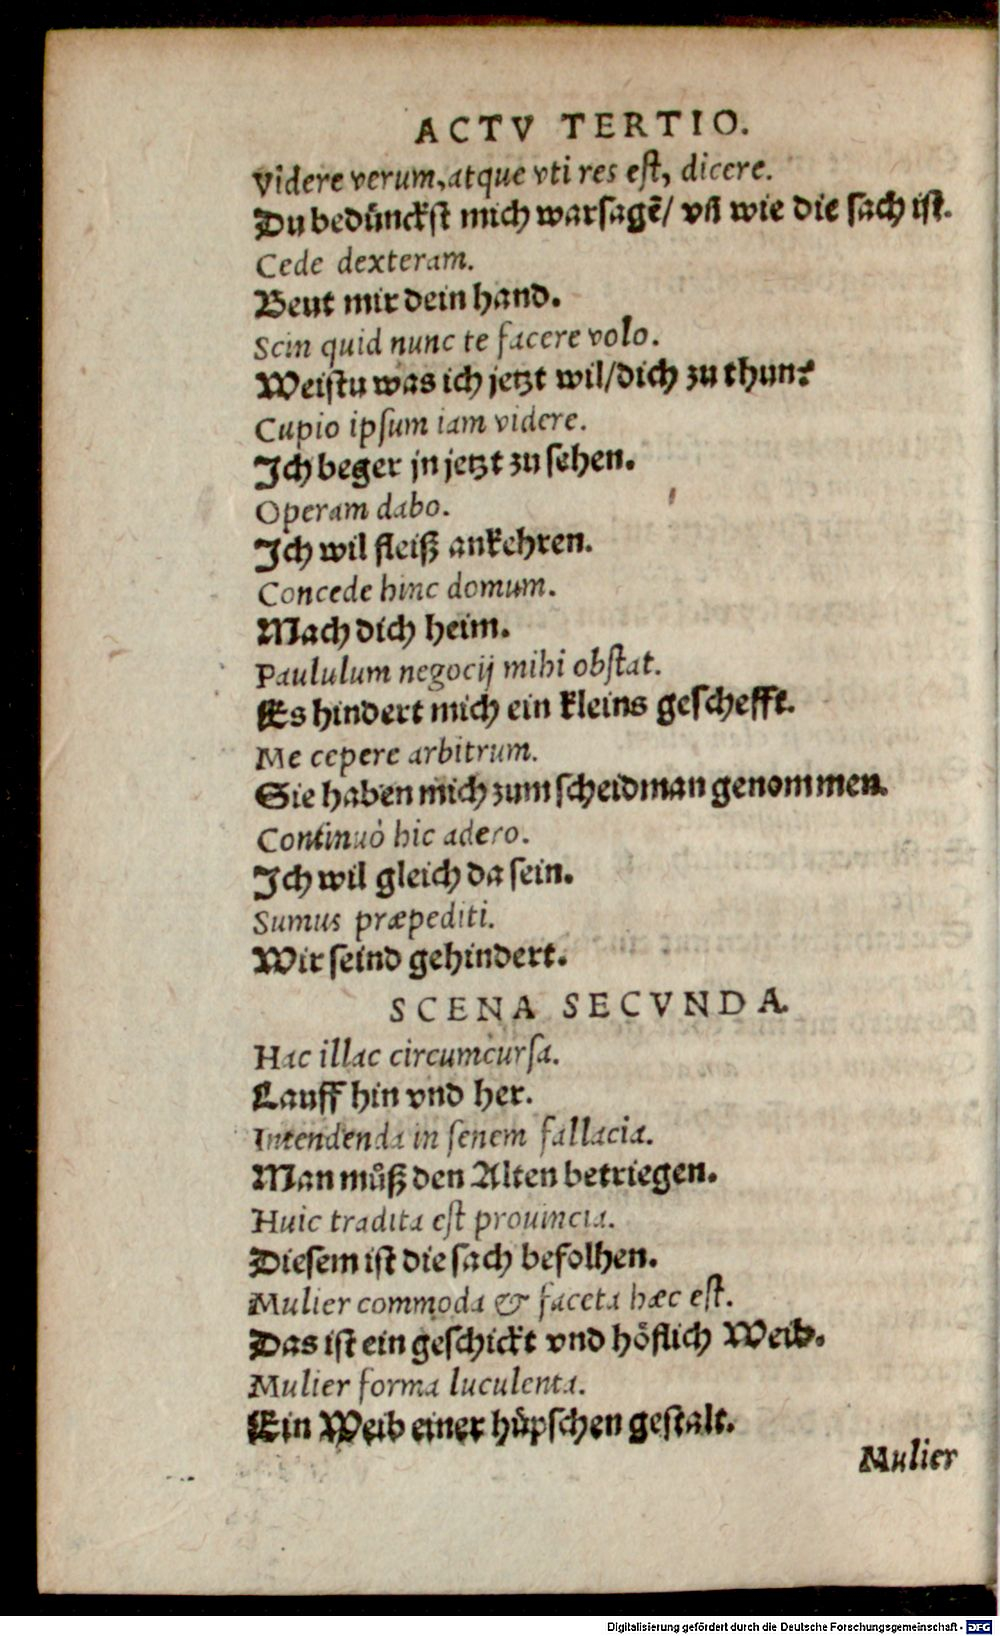 ACTV TERTIO.
Videre verum, atque vti res est, dicere.
Du bedünckst mich warsagē/ vñ wie die sach ist.
Cede dexteram.
Beut mir dein hand.
Scin quid nunc te facere volo.
Weistu was ich jetzt wil/dich zu thun?
Cupio ipsum iam videre.
Ich beger jn jetzt zu sehen.
Operam dabo.
Ich wil fleiß ankehren.
Concede hinc domum.
Mach dich heim.
Paululum negocij mihi obstat.
Es hindert mich ein kleins geschefft.
Me cepere arbitrum.
Sie haben mich zum scheidman genommen.
Continuò hic adero.
Ich wil gleich da sein.
Sumus præpediti.
Wir seind gehindert.
SCENA SECVNDA.
Hac illac circumcursa.
Lauff hin vnd her.
Intendenda in senem fallacia.
Man müß den Alten betriegen.
Huic tradita est prouincia.
Diesem ist die sach befolhen.
Mulier commoda & faceta hæc est.
Das ist ein geschickt vnd höflich Weib.
Mulier forma luculenta.
Ein Weib einer hüpschen gestalt.
Mulier
Digitalisierung gefördert durch die Deutsche Forschungsgemeinschaft - DFG